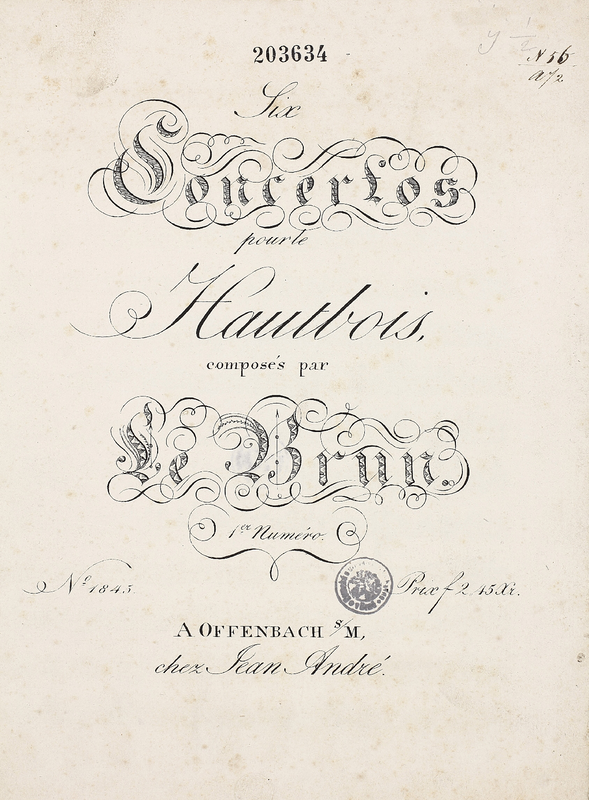 203634
N 56
a 72
Six
Concertos
pour le
Hautbois,
composés par
Le Brun.
1er Numéro.
No. 1845.
Prix f 2.45Xr.
A OFFENBACH s/M,
chez Jean André.